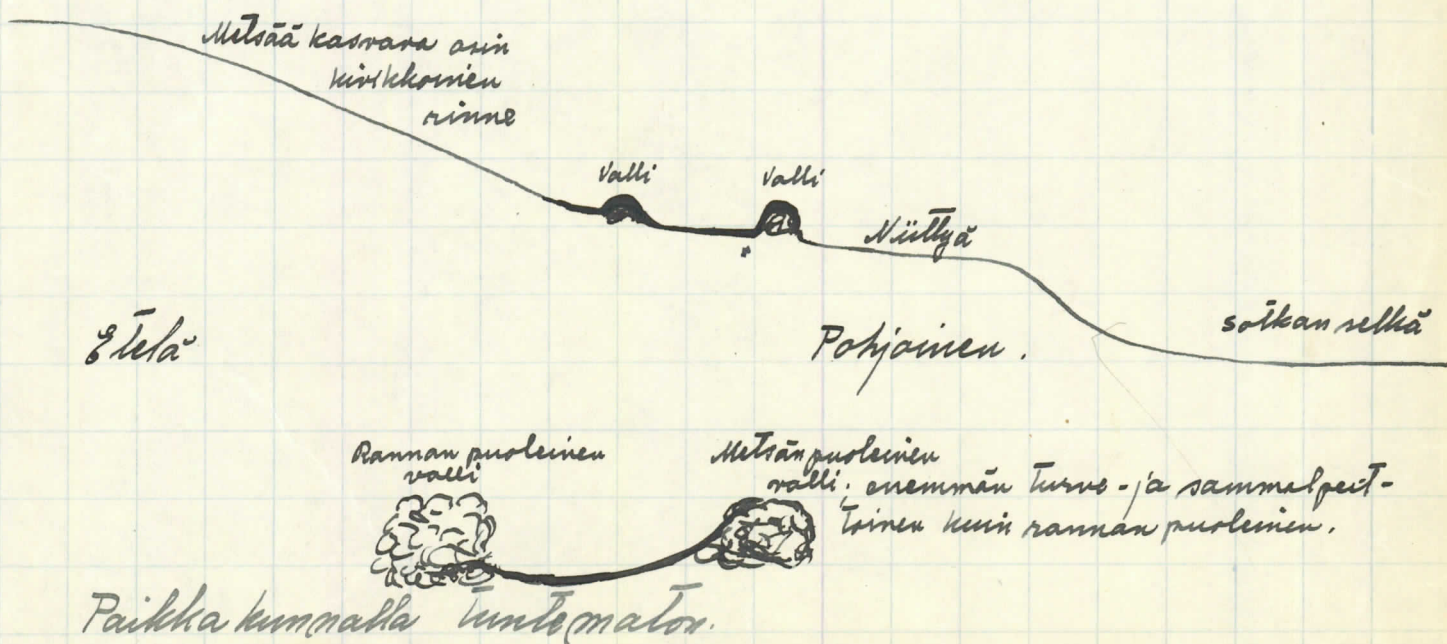 Metsää kasvava osin
kivikkoinen
rinne
Valli
Valli
Niittyä
Etelä
Pohjoinen.
sotkan selkä
Rannan puoleinen
valli
Metsän puoleinen
valli; enemmän turve- ja sammalpeit-
toinen kuin rannan puoleinen.
Paikkakunnalla tuntematon.